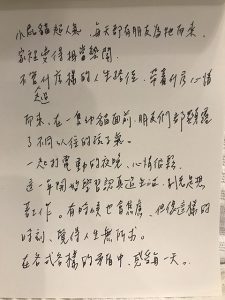 小屁貓超人氣，每天都有朋友為牠而來，
家裡變得相當熱鬧。
不管什麼樣的人生路徑，帶著什麼心情
走過
而來，在一隻小貓面前，朋友們都難得
了不同以往的孩子氣。
一起打電動的夜晚，心情低
這一年開始學習認真過生活，
工作。有時候也會焦慮，但像這樣的
時刻，覺得人生無所求。
在各式各樣的 中，感 每一天。